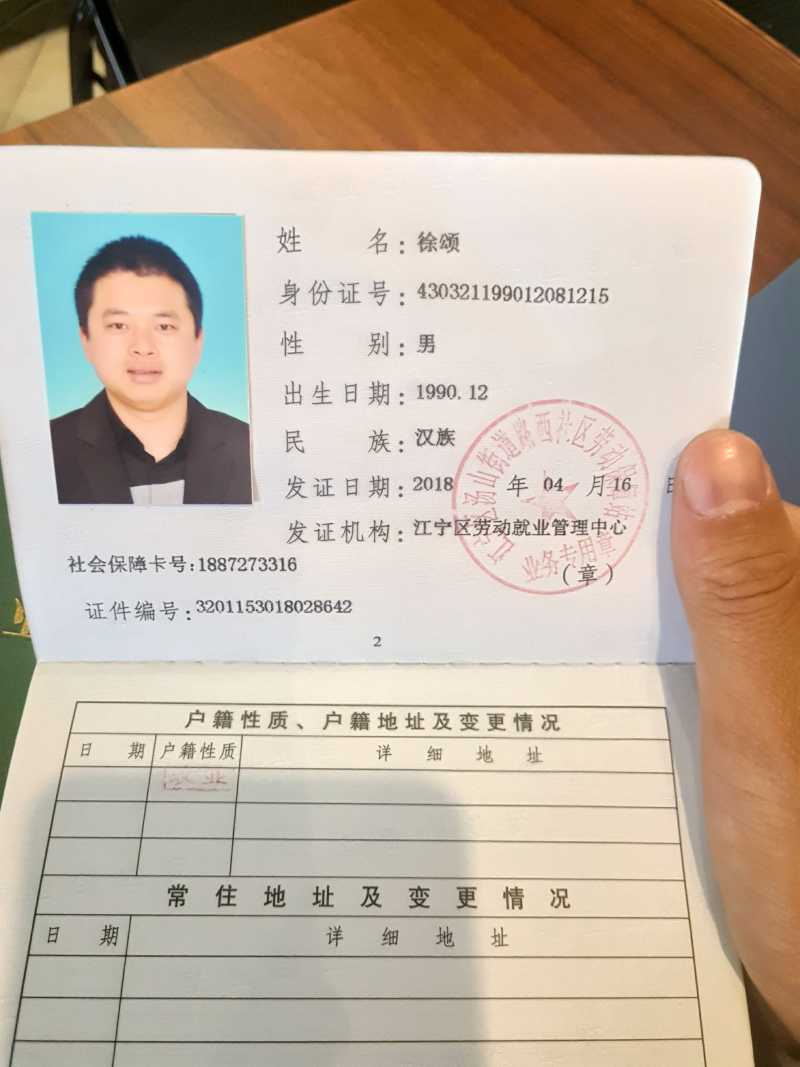 姓名：徐颂
身份证号：430321199012081215
性别：男
出生日期：1990.12
民族：汉族
发证日期：2018年04月16日
发证机构：江宁区劳动就业管理中心
（章）
社会保障卡号：1887273316
证件编号：3201153018028642
业务专用章
2
户籍性质、户籍地址及变更情况
日期 户籍性质 详细地址
常住地址及变更情况
日期 详细地址